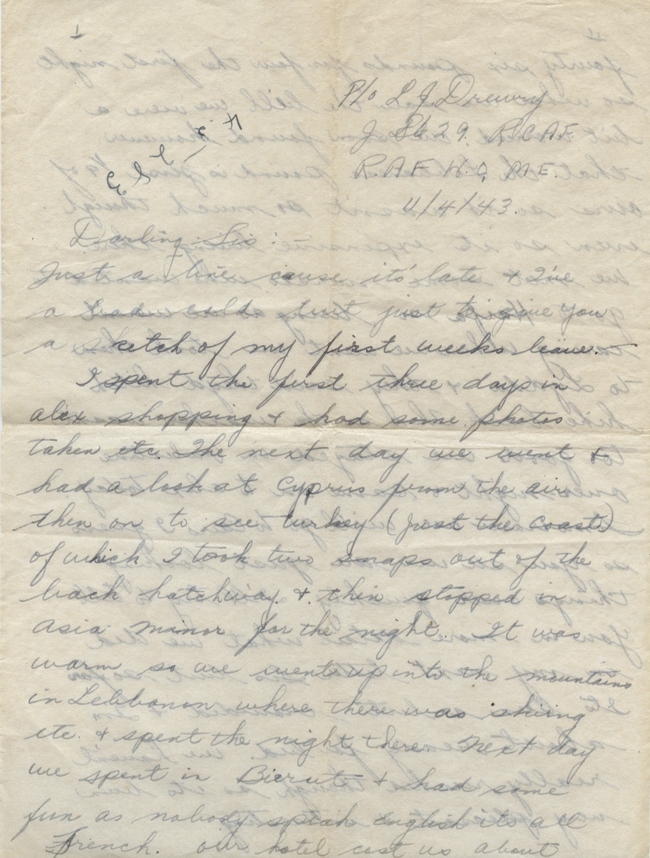 P/o L.J. Drewry
J 8629. R.C.A.F.
R.A.F. H.Q. M.E.
11/4/43.
Darling Sis: -
Just a line cause it's late & I've
a head cold but just to give you
a scetch of my first weeks leave. -
I spent the first three days in
alex shopping & had some photos
taken etc. The next day we went &
had a look at Cyprus from the air
then on to see turkey (just the coast)
of which I took two snaps out of the
back hatchway. & then stopped in
asia minor for the night. It was
warm so we went up into the mountains
in Lebibanon where there was skiing
etc. & spent the night there. Next day
we spent in Bieruts & had some
fun as nobody speak english its all
French. our hotel cost us about